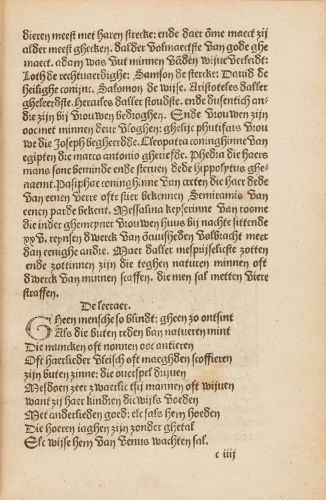 dieren meest met haren strecke; ende daer ōme maect zij
alder meest ghecken. dalder volmaectste van gode ghe
maect. adam was vut minnen vādē wijue verleidt:
Loth de rechtuaerdighe: Samson de stercke: Dauid de
heilighe conijnc. Salomon de wijse. Aristoteles daller
gheleerdste. Hercules daller stoudste. ende dusentich an-
die zijn bij vrouwen bedroghen. Ende vrouwen zijn
ooc met minnen deur vloghen: ghelijc phutifars vrou
we die Joseph begheerdde. Cleopatra coninghinne van
egipten die marco antonio gheriefde. Phedia die haers
mans sone beminde ende steruen dede hippolytus ghe-
naemt. Pasiphae coninghinne van creten die haer dede
van eenen verre oft stier bekennen Semiramis van
eenen parde bekent. Messalina keyserinne van roome
die inder ghemeyner vrouwen huus bij nachte sittende
xxv. reynsen dwerck van onuisheden volbracht meet
dan eenighe andre. Maer dalder mespriselicste zotten
ende zottinnen zijn die teghen naturen minnen oft
dwerck van minnen scaffen. die men sal metten viere
straffen.
De leeraer.
Gheen mensche so blindt; gheen zo ontsint
Als die buten reden van natueren mint
Die muncken oft nonnen ooc antieren
Oft haerlieder vleisch oft maeghden scoffieren
zijn buten zinne; die ouerspel drijuen
Mesdoen zeer zwaerlic tsij mannen oft wijuen
want zij haer kindren dicwijls voeden
Met anderlieden goed; elc sals hem hoeden
Die hoeren iaghen zijn zonder ghetal
Elc wijse hem van venus wachten sal.
c iiij